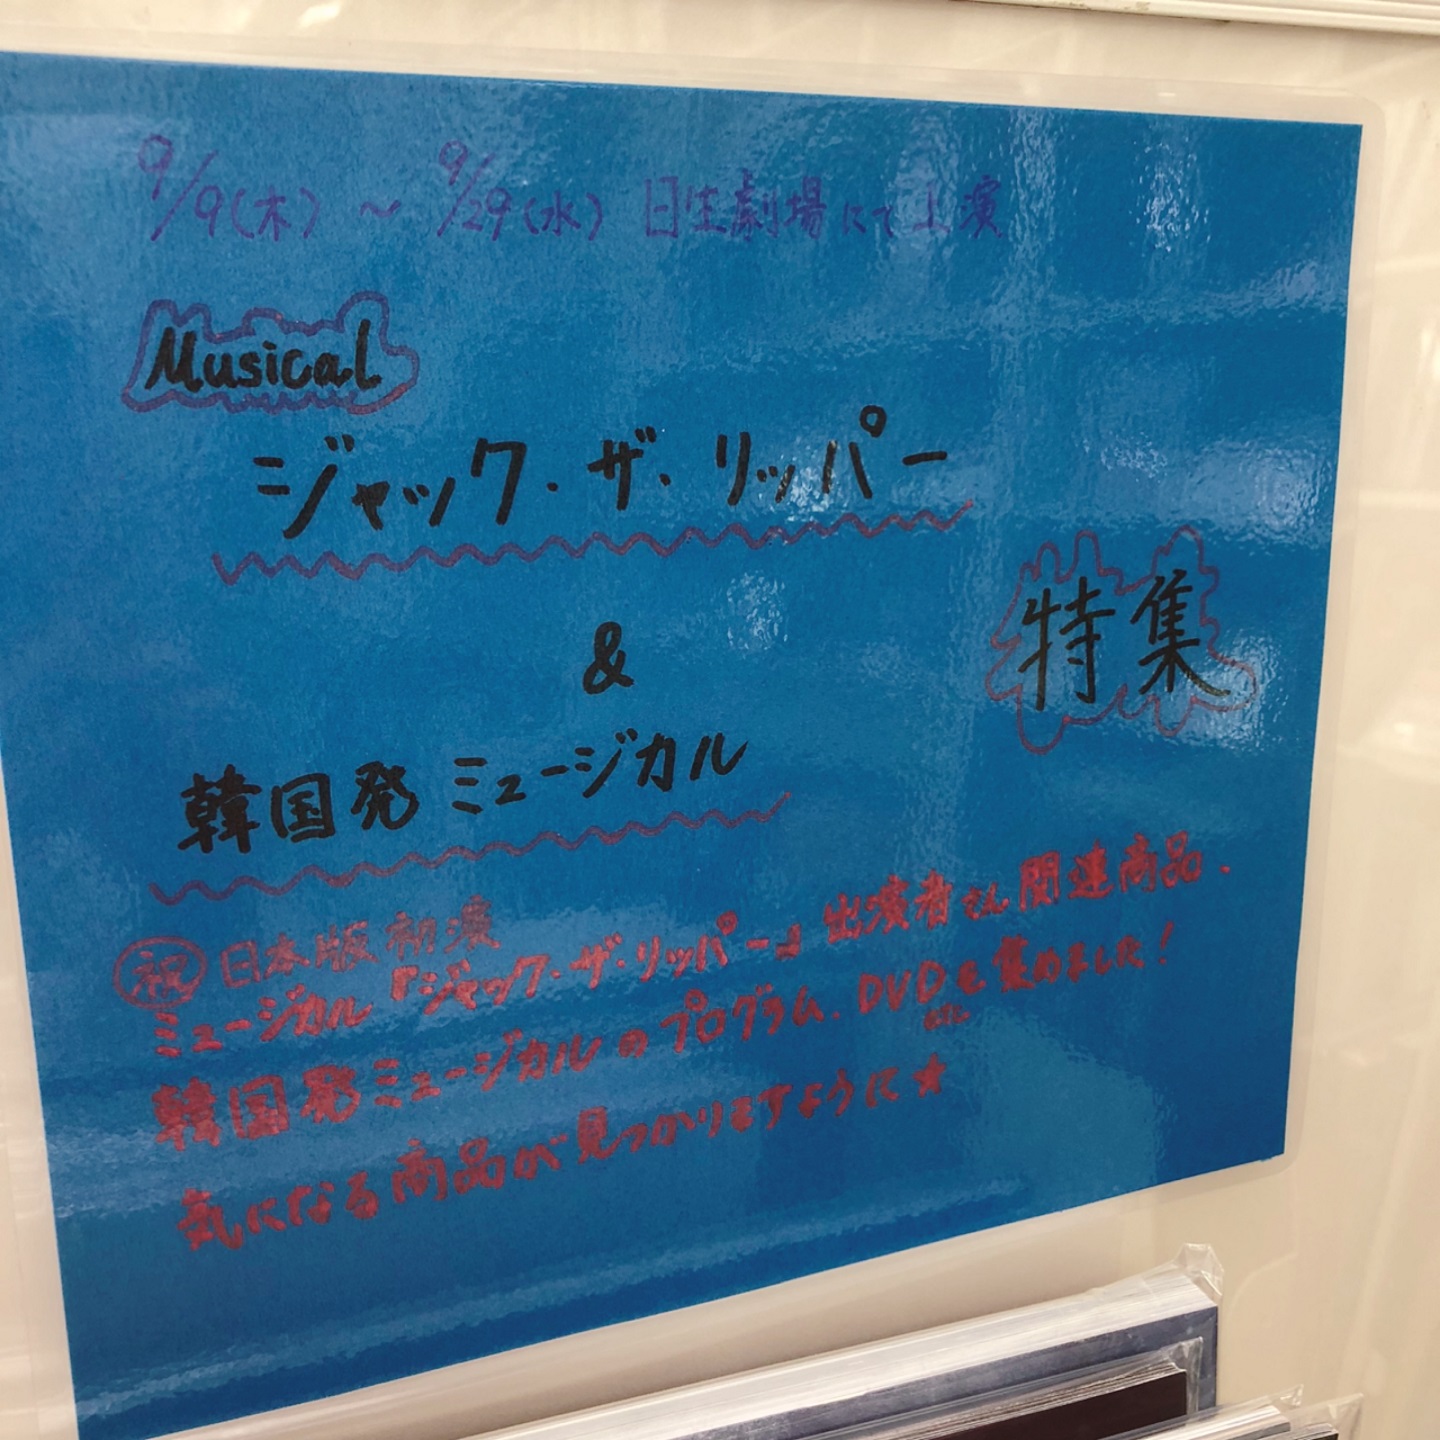 9/9(木) ～ 9/29(水) 日生劇場にて上演
Musical
ジャック・ザ・リッパー
&
特集
韓国発 ミュージカル
㊗ 日本版 初演
ミュージカル『ジャック・ザ・リッパー』出演者さん関連商品、
韓国発ミュージカルのプログラム、DVD etc を集めました！
気になる商品が見つかりますように★